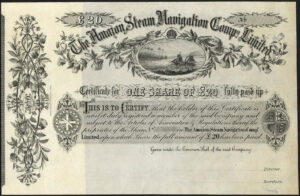 £20 No
The Amazon Steam Navigation Compy. Limited
Certificate for ONE SHARE OF £20 fully paid up
THIS IS TO CERTIFY, that the holder of this Certificate is
and duly registered a member of the said Company and
subject to the Articles of Association & Regulations thereof the
proprietor of the Share No The Amazon Steam Navigation Compy.
Limited, upon which Share the full amount of £20 has been paid
Given under the Common Seal of the said Company
Director
Secretary